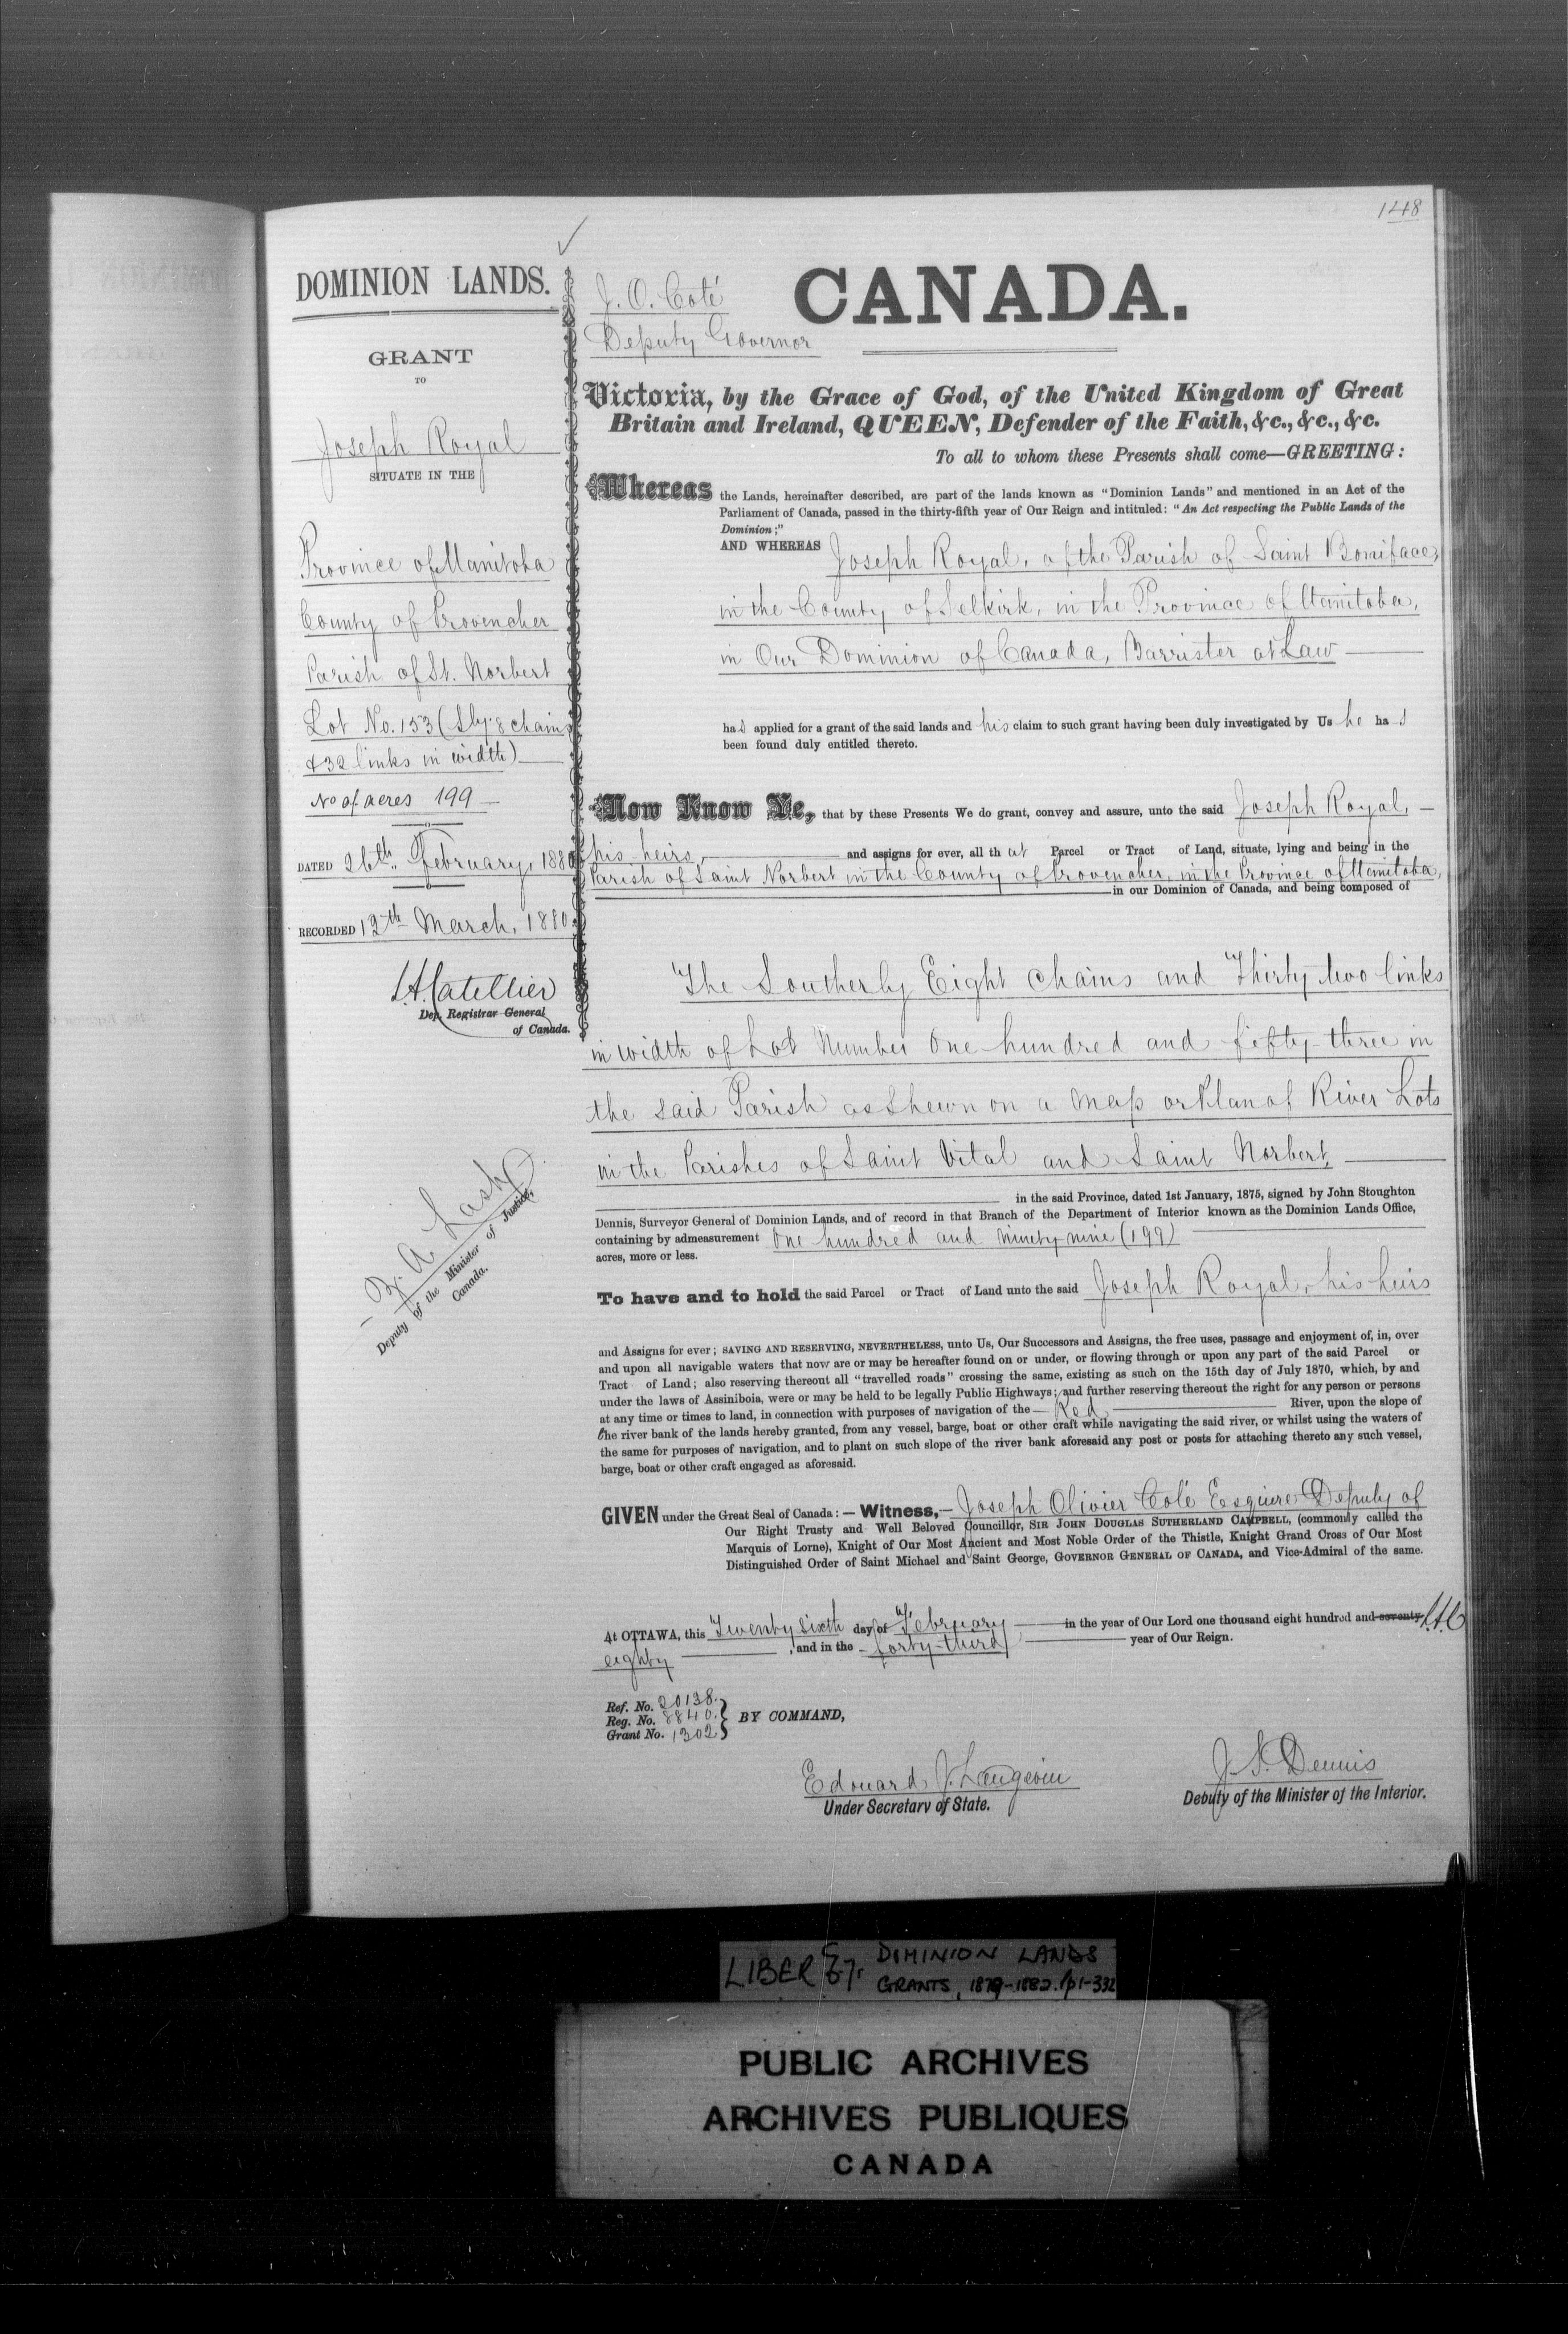 148
DOMINION LANDS.
GRANT
TO
Joseph Royal
SITUATE IN THE
Province of Manitoba
County of Provencher
Parish of St. Norbert
Lot No. 153 (Sly. 8 chains
& 32 links in width)
No of acres 199
DATED 26th. February, 1880
RECORDED 12th March, 1880.
Dep. Registrar General
of Canada.
Z. A. Lash
Deputy of the Minister of Justice,
Canada.
J. O. Coté
Deputy Governor
CANADA.
Victoria, by the Grace of God, of the United Kingdom of Great
Britain and Ireland, QUEEN, Defender of the Faith, &c., &c., &c.
To all to whom these Presents shall come—GREETING:
Whereas the Lands, hereinafter described, are part of the lands known as "Dominion Lands" and mentioned in an Act of the
Parliament of Canada, passed in the thirty-fifth year of Our Reign and intituled: "An Act respecting the Public Lands of the
Dominion;"
AND WHEREAS Joseph Royal, of the Parish of Saint Boniface,
in the County of Selkirk, in the Province of Manitoba,
in Our Dominion of Canada, Barrister at Law
has applied for a grant of the said lands and his claim to such grant having been duly investigated by Us he has
been found duly entitled thereto.
Now Know Ye, that by these Presents We do grant, convey and assure, unto the said Joseph Royal,
his heirs, and assigns for ever, all that Parcel or Tract of Land, situate, lying and being in the
Parish of Saint Norbert in the County of Provencher, in the Province of Manitoba,
in our Dominion of Canada, and being composed of
The Southerly Eight Chains and Thirty two links
in width of Lot Number One hundred and fifty-three in
the said Parish as shewn on a Map or Plan of River Lots
in the Parishes of Saint Vital and Saint Norbert,
in the said Province, dated 1st January, 1875, signed by John Stoughton
Dennis, Surveyor General of Dominion Lands, and of record in that Branch of the Department of Interior known as the Dominion Lands Office,
containing by admeasurement One hundred and ninety-nine (199)
acres, more or less.
To have and to hold the said Parcel or Tract of Land unto the said Joseph Royal, his heirs
and Assigns for ever; SAVING AND RESERVING, NEVERTHELESS, unto Us, Our Successors and Assigns, the free uses, passage and enjoyment of, in, over
and upon all navigable waters that now are or may be hereafter found on or under, or flowing through or upon any part of the said Parcel or
Tract of Land; also reserving thereout all "travelled roads" crossing the same, existing as such on the 15th day of July 1870, which, by and
under the laws of Assiniboia, were or may be held to be legally Public Highways; and further reserving thereout the right for any person or persons
at any time or times to land, in connection with purposes of navigation of the Red River, upon the slope of
the river bank of the lands hereby granted, from any vessel, barge, boat or other craft while navigating the said river, or whilst using the waters of
the same for purposes of navigation, and to plant on such slope of the river bank aforesaid any post or posts for attaching thereto any such vessel,
barge, boat or other craft engaged as aforesaid.
GIVEN under the Great Seal of Canada: — Witness,— Joseph Olivier Coté Esquire Deputy of
Our Right Trusty and Well Beloved Councillor, SIR JOHN DOUGLAS SUTHERLAND CAMPBELL, (commonly called the
Marquis of Lorne), Knight of Our Most Ancient and Most Noble Order of the Thistle, Knight Grand Cross of Our Most
Distinguished Order of Saint Michael and Saint George, GOVERNOR GENERAL OF CANADA, and Vice-Admiral of the same.
At OTTAWA, this Twenty sixth day of February in the year of Our Lord one thousand eight hundred and seventy
eighty, and in the forty-third year of Our Reign.
Ref. No. 20138.
Reg. No. 8840.
Grant No. 1302
BY COMMAND,
Edouard J. Langevin
Under Secretary of State.
J. S. Dennis
Deputy of the Minister of the Interior.
LIBER DOMINION LANDS
GRANTS, 1879-1882. pp1-332
PUBLIC ARCHIVES
ARCHIVES PUBLIQUES
CANADA